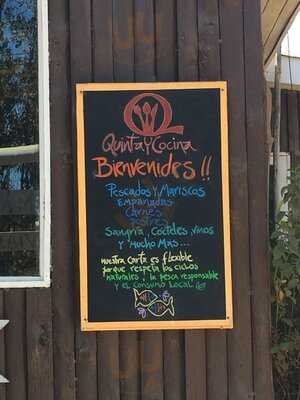 Quinta y Cocina
Bienvenides!!
Pescados y Mariscos
Empanadas
Carnes
Postres
Sangría, Cocteles, vinos
y Mucho Mas...
nuestra carta es flexible
porque respeta los ciclos
naturales, la pesca responsable
y el consumo local